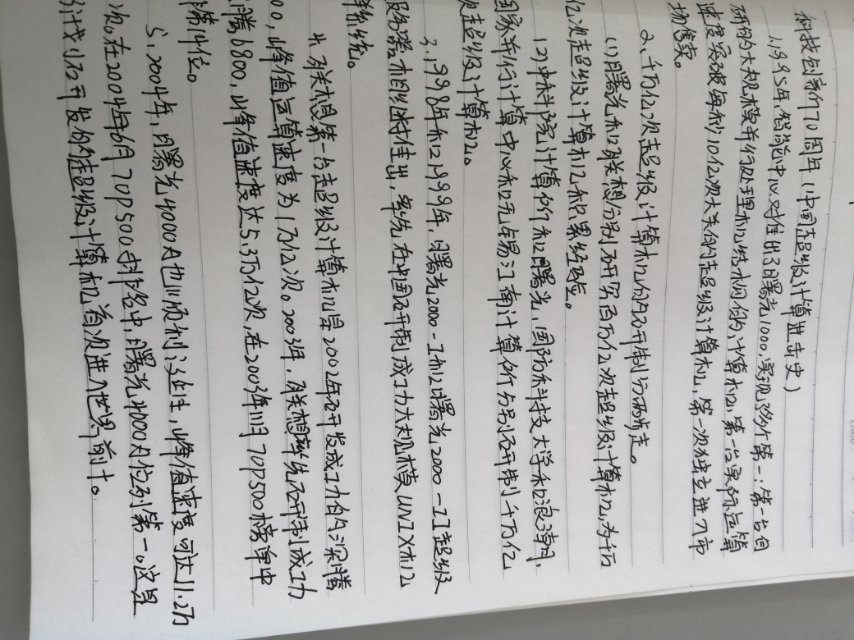 科技创新70周年(中国超级计算进击史)
1.1995年,智能中心又推出了曙光1000,实现多个第一:第一台自
研的大规模并行处理机结构的计算机,第一台实际运算
速度突破每秒10亿次大关的超级计算机,第一次独立进入市
场售卖。
2.千万亿次超级计算机的研制分两步走。
(1)曙光和联想分别研究百万亿次超级计算机,为千万
亿次超级计算机积累经验。
(2)中科院计算所和曙光,国防科技大学和浪潮,
国家并行计算中心和无锡江南计算所分别研制千万亿
次超级计算机。
3.1998年和1999年,曙光2000-I和曙光2000-II超级
服务器相继推出,率先在中国研制成功大规模UNIX机
群系统。
4.联想第一台超级计算机是2002年研发成功的深腾
00,峰值运算速度为1万亿次。2003年,联想率先研制成功
腾6800,峰值速度达5.3万亿次,在2003年11月TOP500榜单中
第14位。
5.2004年,曙光4000A也顺利诞生,峰值速度可达11.2万
次。在2004年6月TOP500排名中,曙光4000A位列第一。这是
计划研发的超级计算机首次进入世界前十。